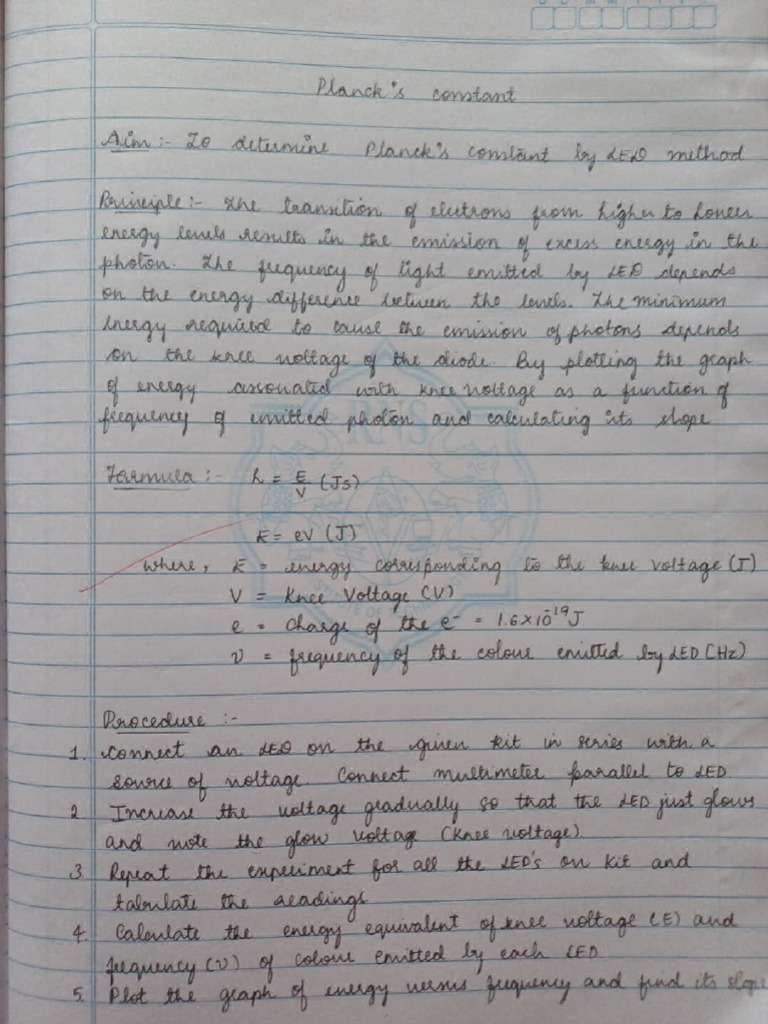 Planck's constant
Aim :- To determine Planck's constant by LED method
Principle :- The transition of electrons from higher to lower
energy levels results in the emission of excess energy in the
photon. The frequency of light emitted by LED depends
on the energy difference between the levels. The minimum
energy required to cause the emission of photons depends
on the knee voltage of the diode. By plotting the graph
of energy associated with knee voltage as a function of
frequency of emitted photon and calculating its slope
Formula :- h = E/ν (Js)
E = eV (J)
where, E = energy corresponding to the knee voltage (J)
V = Knee Voltage (V)
e = charge of the e⁻ = 1.6×10⁻¹⁹J
ν = frequency of the colour emitted by LED (Hz)
Procedure :-
1. Connect an LED on the given kit in series with a
source of voltage. Connect multimeter parallel to LED
2. Increase the voltage gradually so that the LED just glows
and note the glow voltage (Knee voltage)
3. Repeat the experiment for all the LED's on kit and
tabulate the readings
4. Calculate the energy equivalent of knee voltage (E) and
frequency (ν) of colour emitted by each LED
5. Plot the graph of energy versus frequency and find its slope
RNS